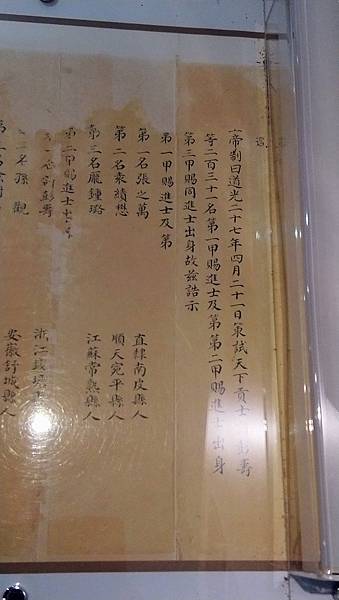 帝制曰道光二十七年四月二十一日策試天下貢士彭壽
等二百三十一名第一甲賜進士及第第二甲賜進士出身
第三甲賜同進士出身故茲誥示
第一甲賜進士及第
第一名張之萬 直隸南皮縣人
第二名袁績懋 順天宛平縣人
第三名龐鍾璐 江蘇常熟縣人
第二甲賜進士出身
名許彭壽 浙江錢塘
二名孫觀 安徽舒城縣人